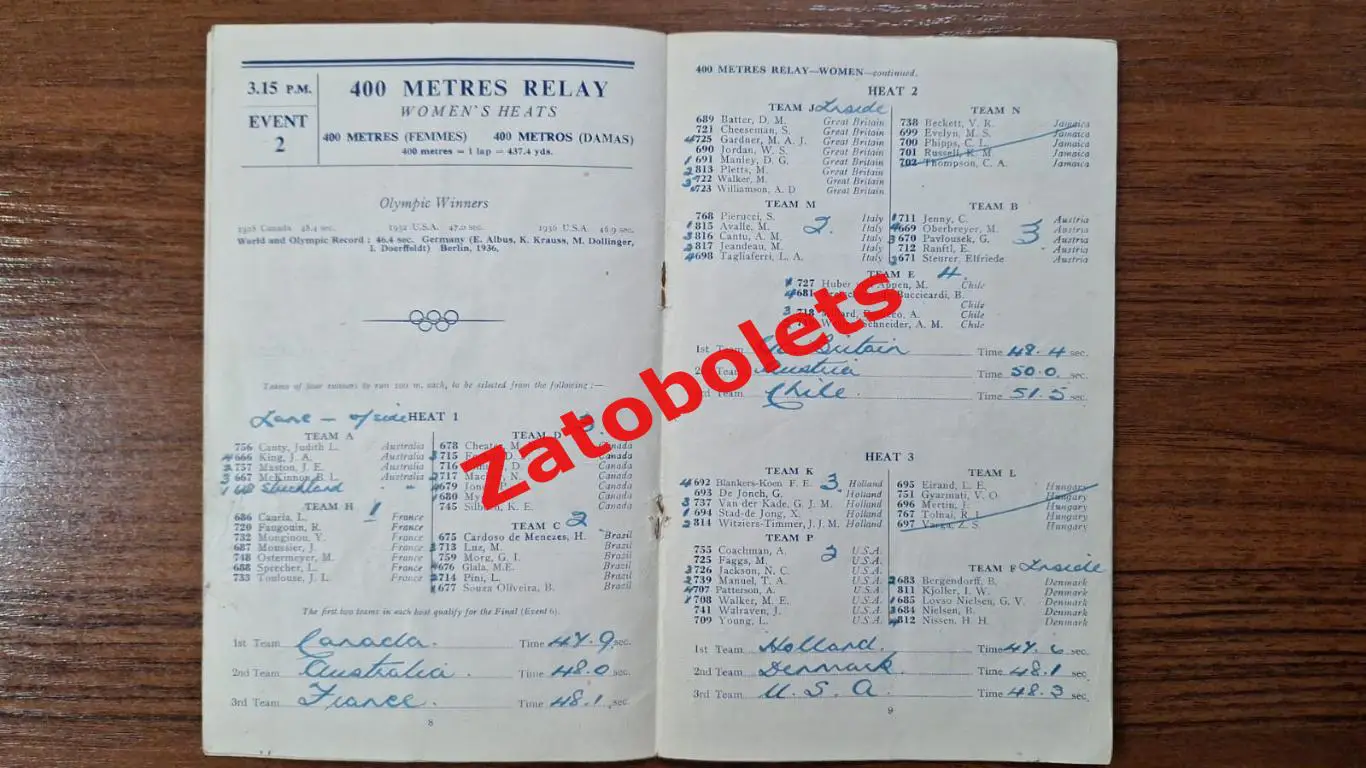 3.15 P.M.
EVENT
2
400 METRES RELAY
WOMEN'S HEATS
400 METRES (FEMMES) 400 METROS (DAMAS)
400 metres = 1 lap = 437.4 yds.
Olympic Winners
1928 Canada 48.4 sec. 1932 U.S.A. 47.0 sec. 1936 U.S.A. 46.9 sec.
World and Olympic Record : 46.4 sec. Germany (E. Albus, K. Krauss, M. Dollinger,
I. Doerffeldt) Berlin, 1936.
Teams of four runners to run 100 m. each, to be selected from the following :—
Lane — o/side HEAT 1
TEAM A
756 Canty, Judith L. Australia
4 666 King, J. A. Australia
2 757 Maston, J. E. Australia
3 667 McKinnon, B. L. Australia
1 668 Strickland " "
TEAM H 1
686 Cauria, L. France
720 Faugouin, R. France
732 Monginou, Y. France
687 Moussier, J. France
748 Ostermeyer, M. France
688 Sprecher, L. France
733 Toulouse, J. L. France
TEAM D 3
678 Canada
3 715 Canada
716 Canada
2 717 Canada
4 679 Canada
1 680 Canada
745 K. E. Canada
TEAM C 2
675 Cardoso de Menezes, H. Brazil
3 713 Luz, M. Brazil
759 Morg, G. I. Brazil
4 676 Glala, M.E. Brazil
2 714 Pini, L. Brazil
1 677 Souza Oliveira, B. Brazil
The first two teams in each heat qualify for the Final (Event 6).
1st Team Canada. Time 47.9 sec.
2nd Team Australia. Time 48.0 sec.
3rd Team France. Time 48.1 sec.
8
400 METRES RELAY—WOMEN—continued.
HEAT 2
TEAM J Inside
689 Batter, D. M. Great Britain
721 Cheeseman, S. Great Britain
4 725 Gardner, M. A. J. Great Britain
690 Jordan, W. S. Great Britain
1 691 Manley, D. G. Great Britain
2 813 Pletts, M. Great Britain
3 722 Walker, M. Great Britain
723 Williamson, A. D Great Britain
TEAM N
738 Beckett, V. R. Jamaica
699 Evelyn, M. S. Jamaica
700 Phipps, C. L. Jamaica
701 Russell, K. M Jamaica
702 Thompson, C. A. Jamaica
TEAM M 2
768 Pierucci, S. Italy
1 815 Avalle, M. Italy
3 816 Cantu, A. M. Italy
2 817 Jeandeau, M. Italy
4 698 Tagliaferri, L. A. Italy
TEAM B 3
1 711 Jenny, C. Austria
4 669 Oberbreyer, M. Austria
3 670 Pavlousek, G. Austria
712 Ranftl, E. Austria
2 671 Steurer, Elfriede Austria
TEAM E 4.
727 Huber Appen, M. Chile
4 681 Buccicardi, B.
Chile
3 718 A. Chile
Schneider, A. M. Chile
1st Team Gt. Britain Time 48.4 sec.
2nd Team Austria Time 50.0 sec.
3rd Team Chile. Time 51.5 sec.
HEAT 3
TEAM K 3
4 692 Blankers-Koen F. E. Holland
693 De Jonch, G. Holland
3 737 Van der Kade, G. J. M. Holland
1 694 Stad-de Jong, X. Holland
2 814 Witziers-Timmer, J. J. M. Holland
TEAM L
695 Eirand, L. E. Hungary
751 Gyarmati, V. O Hungary
696 Mertin, J. Hungary
767 Tolnai, R. I. Hungary
697 Varga, Z. S. Hungary
TEAM P 2
755 Coachman, A. U.S.A.
725 Faggs, M. U.S.A.
3 726 Jackson, N. C. U.S.A.
2 739 Manuel, T. A. U.S.A.
4 707 Patterson, A. U.S.A.
1 708 Walker, M. E. U.S.A.
741 Walraven, J. U.S.A.
709 Young, L. U.S.A.
TEAM F Inside
2 683 Bergendorff, B. Denmark
811 Kjoller, I. W. Denmark
1 685 Lovso Nielsen, G. V. Denmark
3 684 Nielsen, B. Denmark
4 812 Nissen, H H. Denmark
1st Team Holland. Time 47.6 sec.
2nd Team Denmark Time 48.1 sec.
3rd Team U. S. A. Time 48.3 sec.
9
Zatobolets